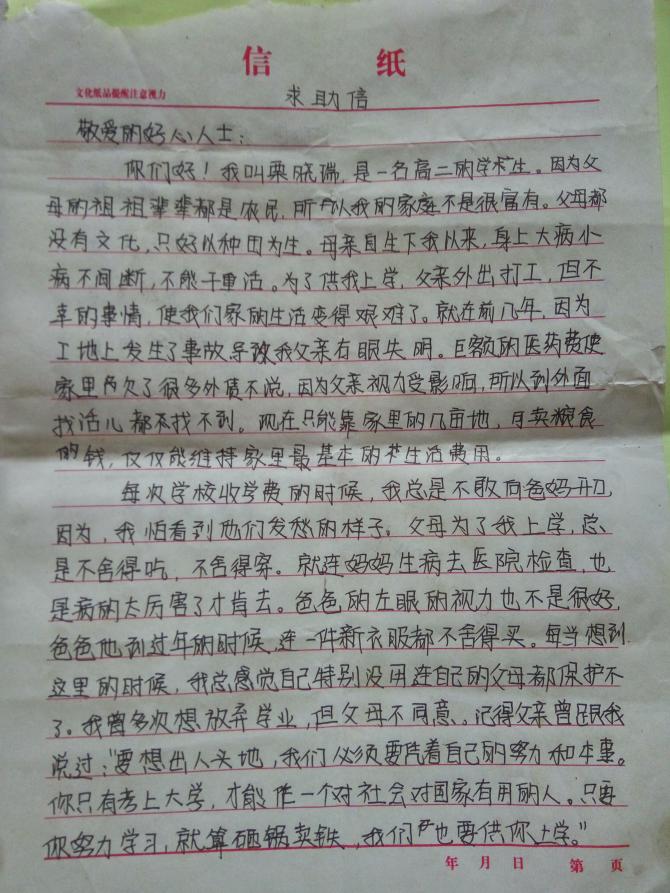 信 纸
文化纸品提醒注意视力
求助信
敬爱的好心人士：
你们好！我叫栗晓瑞，是一名高二的学生。因为父
母的祖祖辈辈都是农民，所以我的家庭不是很富有。父母都
没有文化，只好以种田为生。母亲自生下我以来，身上大病小
病不间断，不能干重活。为了供我上学，父亲外出打工，但不
幸的事情，使我们家的生活变得艰难了。就在前几年，因为
工地上发生了事故导致我父亲右眼失明。巨额的医药费使
家里欠了很多外债不说，因为父亲视力受影响，所以到外面
找活儿都找不到。现在只能靠家里的几亩地，卖粮食
的钱，仅仅能维持家里最基本的生活费用。
每次学校收学费的时候，我总是不敢向爸妈开口，
因为，我怕看到他们发愁的样子。父母为了我上学，总
是不舍得吃，不舍得穿。就连妈妈生病去医院检查，也
是病的太厉害了才肯去。爸爸的左眼的视力也不是很好，
爸爸他到过年的时候，连一件新衣服都不舍得买。每当想到
这里的时候，我总感觉自己特别没用连自己的父母都保护不
了。我曾多次想放弃学业，但父母不同意。记得父亲曾跟我
说过："要想出人头地，我们必须要凭着自己的努力和本事。
你只有考上大学，才能作一个对社会对国家有用的人。只要
你努力学习，就算砸锅卖铁，我们也要供你上学。"
年 月 日 第 页